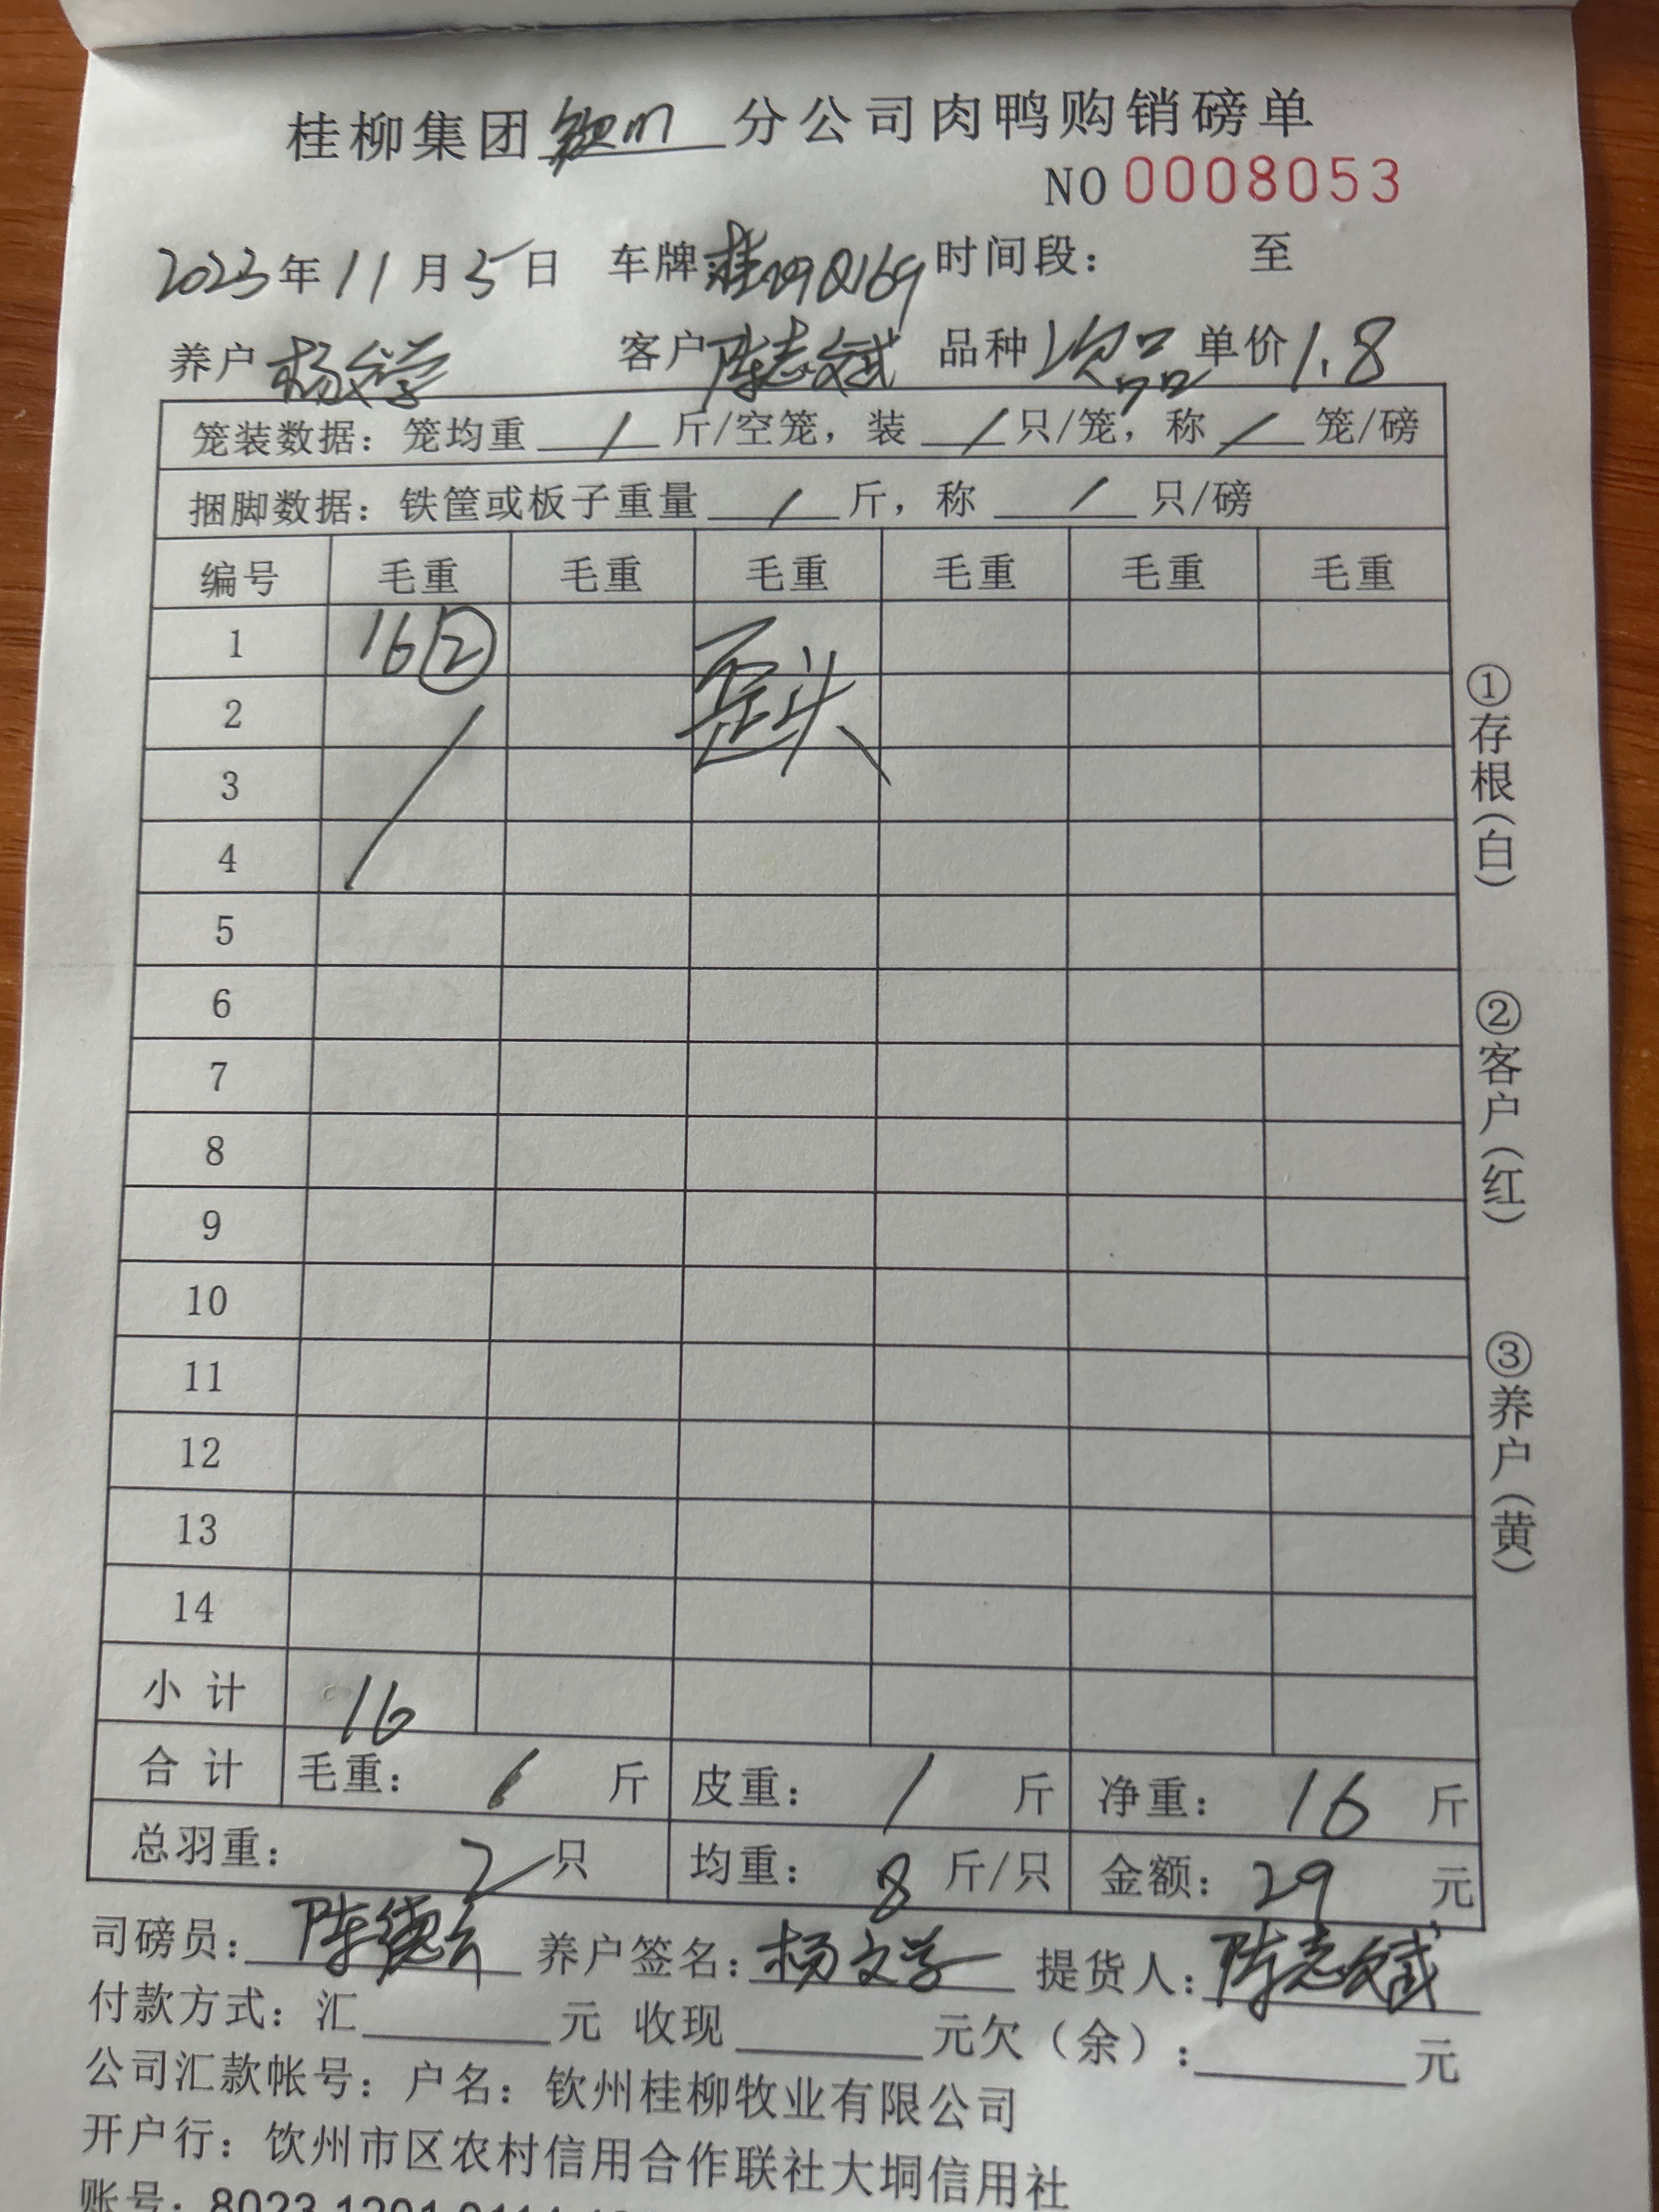 桂柳集团钦州分公司肉鸭购销磅单
NO 0008053
2023年11月5日 车牌:桂 Q169 时间段: 至
养户杨文学 客户陈志斌 品种次品 单价1.8
笼装数据:笼均重 / 斤/空笼,装 / 只/笼,称 / 笼/磅
捆脚数据:铁筐或板子重量 / 斤,称 / 只/磅
编号 毛重 毛重 毛重 毛重 毛重 毛重
1 16② 歪头
2
3
4
5
6
7
8
9
10
11
12
13
14
小计 16
合计 毛重: 斤 皮重: / 斤 净重: 16 斤
总羽重: 2只 均重: 8 斤/只 金额: 29 元
司磅员:陈德 养户签名:杨文学 提货人:陈志斌
付款方式:汇 元 收现 元欠(余): 元
公司汇款帐号:户名:钦州桂柳牧业有限公司
开户行:钦州市区农村信用合作联社大垌信用社
账号:8023 1201 0114
①存根(白)
②客户(红)
③养户(黄)